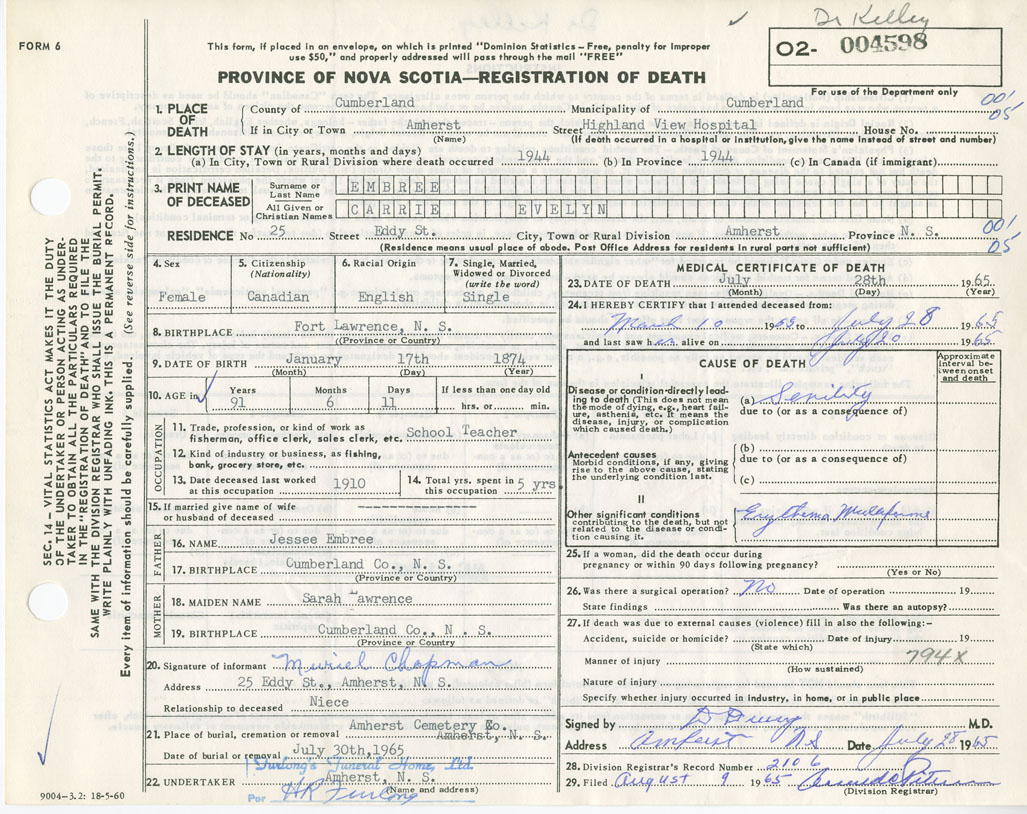 Dr Kelley
FORM 6
02- 004598
This form, if placed in an envelope, on which is printed "Dominion Statistics—Free, penalty for improper
use $50," and properly addressed will pass through the mail "FREE"
PROVINCE OF NOVA SCOTIA—REGISTRATION OF DEATH
For use of the Department only
001
05
1. PLACE OF DEATH County of Cumberland Municipality of Cumberland
If in City or Town Amherst Street Highland View Hospital House No.
(Name) (If death occurred in a hospital or institution, give the name instead of street and number)
2. LENGTH OF STAY (in years, months and days)
(a) In City, Town or Rural Division where death occurred 1944 (b) In Province 1944 (c) In Canada (if immigrant)
3. PRINT NAME OF DECEASED Surname or Last Name EMBREE
All Given or Christian Names CARRIE EVELYN
001
05
RESIDENCE No 25 Street Eddy St. City, Town or Rural Division Amherst Province N. S.
(Residence means usual place of abode. Post Office Address for residents in rural parts not sufficient)
4. Sex Female
5. Citizenship (Nationality) Canadian
6. Racial Origin English
7. Single, Married, Widowed or Divorced (write the word) Single
8. BIRTHPLACE Fort Lawrence, N. S.
(Province or Country)
9. DATE OF BIRTH January 17th 1874
(Month) (Day) (Year)
10. AGE in Years 91 Months 6 Days 11 If less than one day old hrs. or min.
OCCUPATION
11. Trade, profession, or kind of work as
fisherman, office clerk, sales clerk, etc. School Teacher
12. Kind of industry or business, as fishing,
bank, grocery store, etc.
13. Date deceased last worked at this occupation 1910
14. Total yrs. spent in this occupation 5 yrs.
15. If married give name of wife
or husband of deceased
FATHER
16. NAME Jessee Embree
17. BIRTHPLACE Cumberland Co., N. S.
(Province or Country)
MOTHER
18. MAIDEN NAME Sarah Lawrence
19. BIRTHPLACE Cumberland Co., N. S.
(Province or Country)
20. Signature of informant Muriel Chapman
Address 25 Eddy St., Amherst, N. S.
Relationship to deceased Niece
21. Place of burial, cremation or removal Amherst Cemetery Co.
Amherst, N. S.
Date of burial or removal July 30th, 1965
Furlong's Funeral Home, Ltd.
22. UNDERTAKER Amherst, N. S.
(Name and address)
Per HR Furlong
9004-3.2: 18-5-60
MEDICAL CERTIFICATE OF DEATH
23. DATE OF DEATH July 28th 1965.
(Month) (Day) (Year)
24. I HEREBY CERTIFY that I attended deceased from:
March 10 1965 to July 28 1965
and last saw her alive on July 20 1965
CAUSE OF DEATH
Approximate interval between onset and death
I
Disease or condition directly leading to death (This does not mean the mode of dying, e.g., heart failure, asthenia, etc. It means the disease, injury, or complication which caused death.)
(a) Senility
due to (or as a consequence of)
Antecedent causes
Morbid conditions, if any, giving rise to the above cause, stating the underlying condition last.
(b)
due to (or as a consequence of)
(c)
II
Other significant conditions
contributing to the death, but not related to the disease or condition causing it.
Erythema Multiforme
25. If a woman, did the death occur during
pregnancy or within 90 days following pregnancy?
(Yes or No)
26. Was there a surgical operation? No Date of operation 19
State findings Was there an autopsy?
27. If death was due to external causes (violence) fill in also the following:—
Accident, suicide or homicide? Date of injury 19
(State which)
Manner of injury 794X
(How sustained)
Nature of injury
Specify whether injury occurred in industry, in home, or in public place
Signed by D Drury M.D.
Address Amherst NS Date July 28 1965
28. Division Registrar's Record Number 2106
29. Filed August 9 1965
(Division Registrar)
SEC. 14—VITAL STATISTICS ACT MAKES IT THE DUTY
OF THE UNDERTAKER OR PERSON ACTING AS UNDER-
TAKER TO OBTAIN ALL THE PARTICULARS REQUIRED
IN THE "REGISTRATION OF DEATH" AND TO FILE THE
SAME WITH THE DIVISION REGISTRAR WHO SHALL ISSUE THE BURIAL PERMIT.
WRITE PLAINLY WITH UNFADING INK. THIS IS A PERMANENT RECORD.
Every item of information should be carefully supplied. (See reverse side for instructions.)